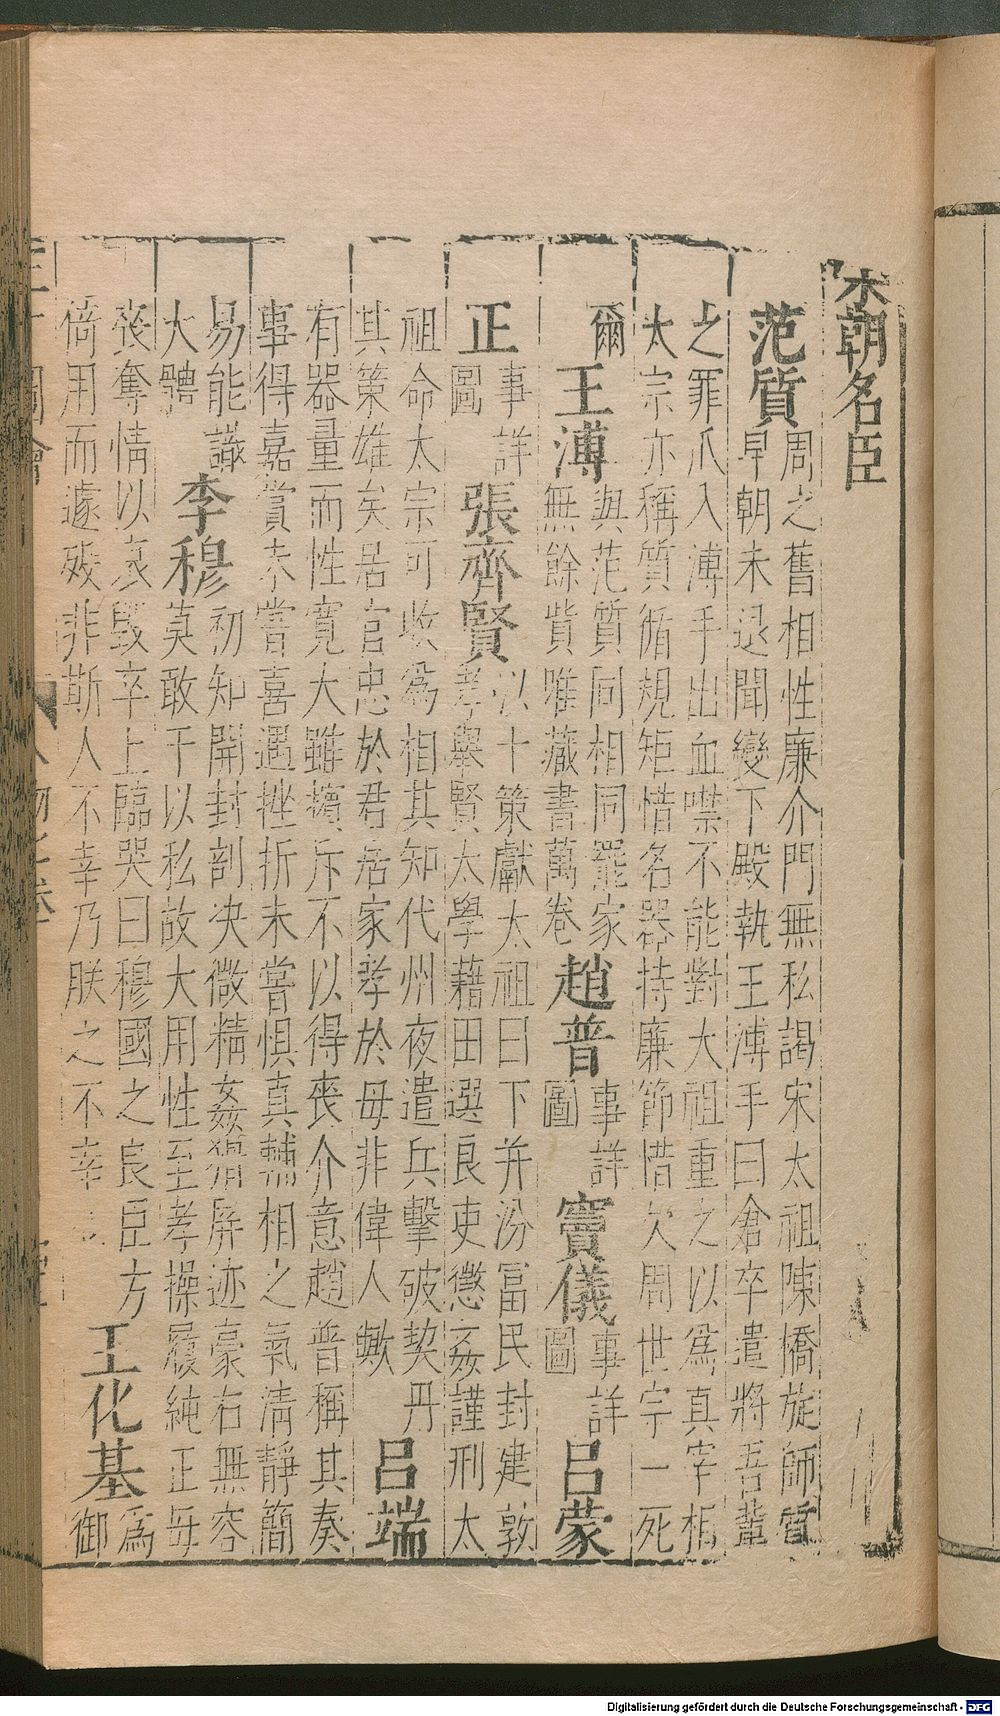 宋朝名臣
范質
周之舊相性廉介門無私謁宋太祖陳橋旋師質
早朝未退聞變下殿執王溥手曰倉卒遣將吾輩
之罪爪入溥手出血噤不能對大祖重之以為真宰相
太宗亦稱質循規矩惜名器持廉節惜欠周世宗一死
爾
王溥
與范質同相同罷家
無餘貲唯藏書萬卷
趙普
事詳
圖
竇儀
事詳
圖
呂蒙
正
事詳
圖
張齊賢
以十策獻太祖曰下并汾富民封建敦
孝舉賢太學藉田選良吏懲姦謹刑太
祖命太宗可收為相其知代州夜遣兵擊破契丹
其策雄矣居官忠於君居家孝於母非偉人歟
呂端
有器量而性寬大雖擯斥不以得喪介意趙普稱其奏
事得嘉賞未嘗喜遇挫折未嘗懼真輔相之氣清靜簡
易能識
大體
李穆
初知開封剖决微精姦猾屏迹豪右無容
莫敢干以私故大用性至孝操履純正母
喪奪情以哀毀卒上臨哭曰穆國之良臣方
倚用而遽歿非斯人不幸乃朕之不幸
王化基
為
御
三才圖會 人物七卷
Digitalisierung gefördert durch die Deutsche Forschungsgemeinschaft - DFG